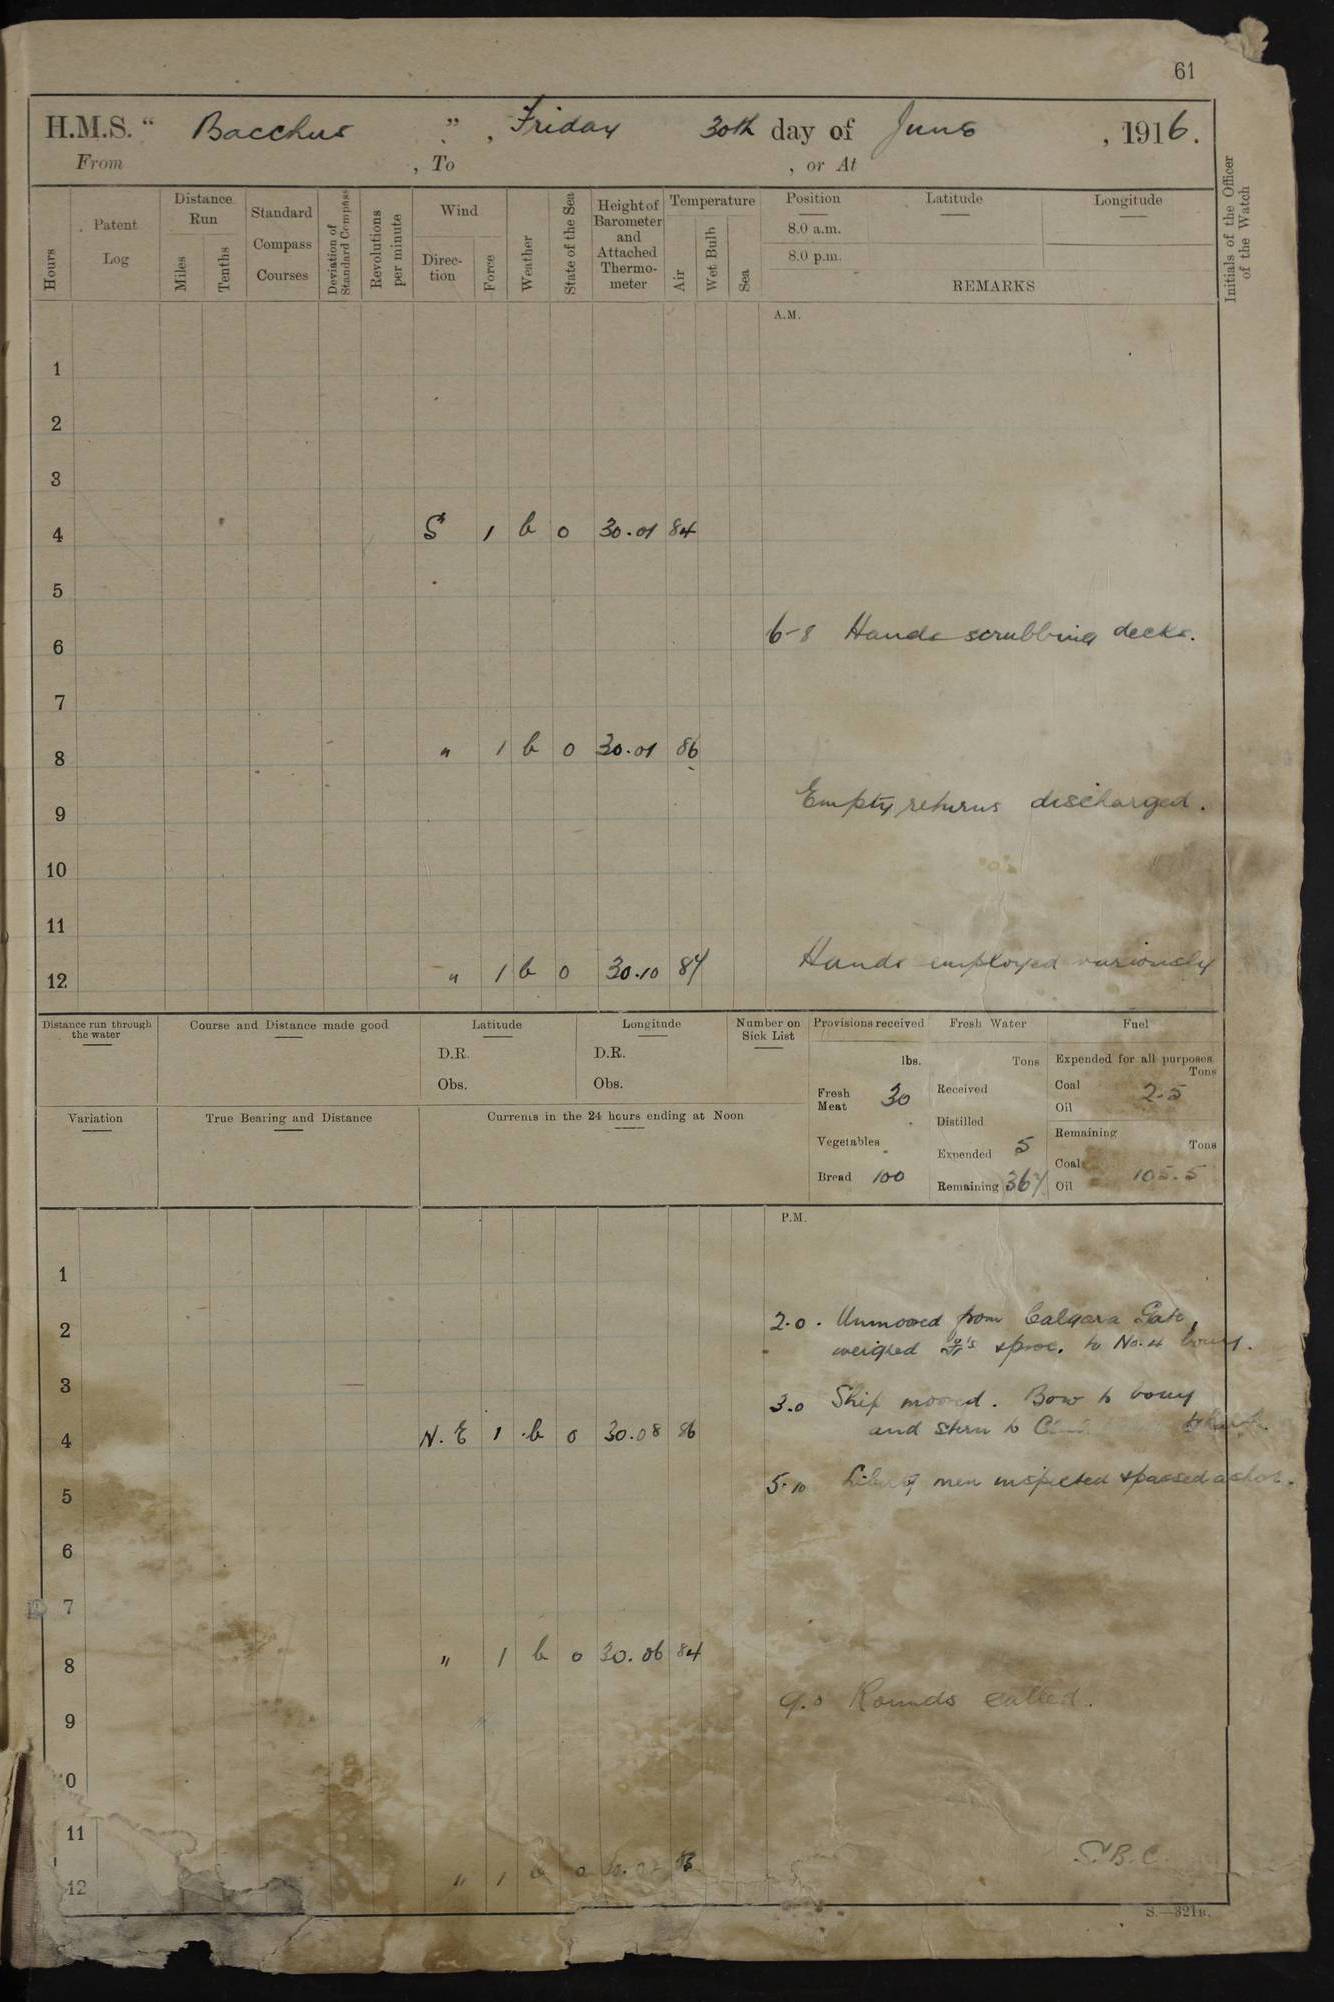 61
H.M.S. “ Bacchus ” , Friday 30th day of June , 1916.
From , To , or At
Hours
Patent Log
Distance Run
Miles
Tenths
Standard Compass Courses
Deviation of Standard Compass
Revolutions per minute
Wind
Direc- tion
Force
Weather
State of the Sea
Height of Barometer and Attached Thermo- meter
Temperature
Air
Wet Bulb
Sea
Position
8.0 a.m.
8.0 p.m.
Latitude
Longitude
REMARKS
Initials of the Officer of the Watch
A.M.
1
2
3
4 S 1 b 0 30.01 84
5
6 6-8 Hands scrubbing decks.
7
8 " 1 b 0 30.01 86
9 Empty returns discharged.
10
11
12 " 1 b 0 30.10 84 Hands employed variously
Distance run through the water
Course and Distance made good
Latitude
D.R.
Obs.
Longitude
D.R.
Obs.
Number on Sick List
Variation
True Bearing and Distance
Currents in the 24 hours ending at Noon
Provisions received
lbs.
Fresh Meat 30
Vegetables
Bread 100
Fresh Water
Tons
Received
Distilled
Expended 5
Remaining 367
Fuel
Expended for all purposes
Tons
Coal 2.5
Oil
Remaining
Tons
Coal 105.5
Oil
P.M.
1
2 2.0. Unmoored from Gate,
weighed & proc. to No. 4 bouy.
3 3.0 Ship moored. Bow to bouy
and stern to
4 N.E 1 b 0 30.08 86
5 5.10 Liberty men inspected & passed ashore.
6
7
8 " 1 b 0 30.06 84
9 9.0 Rounds called.
0
11
12 " 1 b 0
S.B.C.
S.—321B.